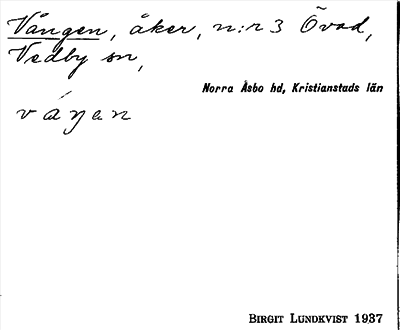 Vången, åker, n:r 3 Övad,
Vedby sn,
Norra Åsbo hd, Kristianstads län
våŋen
BIRGIT LUNDKVIST 1937